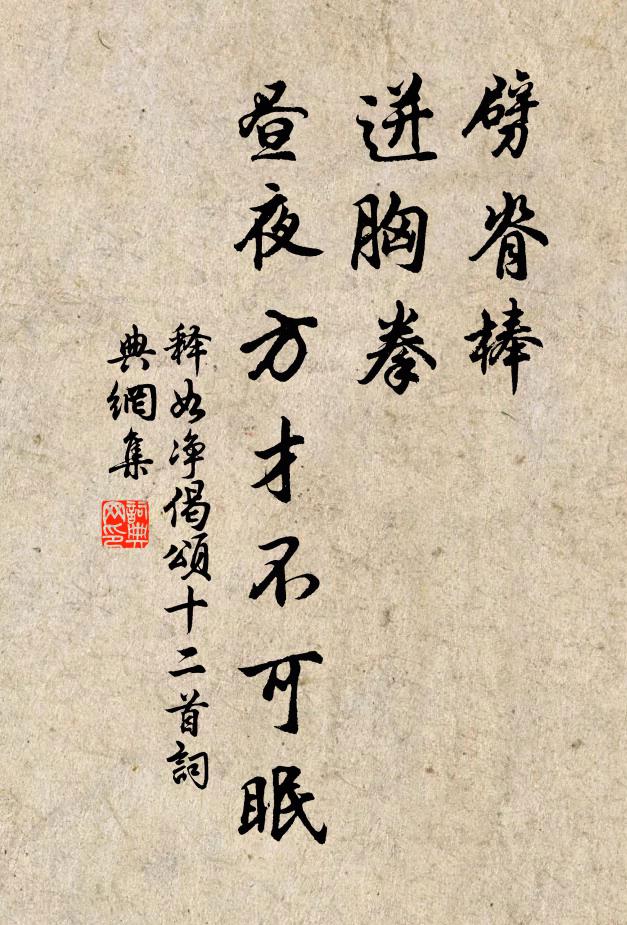 劈脊棒
迸胸拳
昼夜方才不可眠
释如净偈頌十二首詞
典網集
詞典
网印